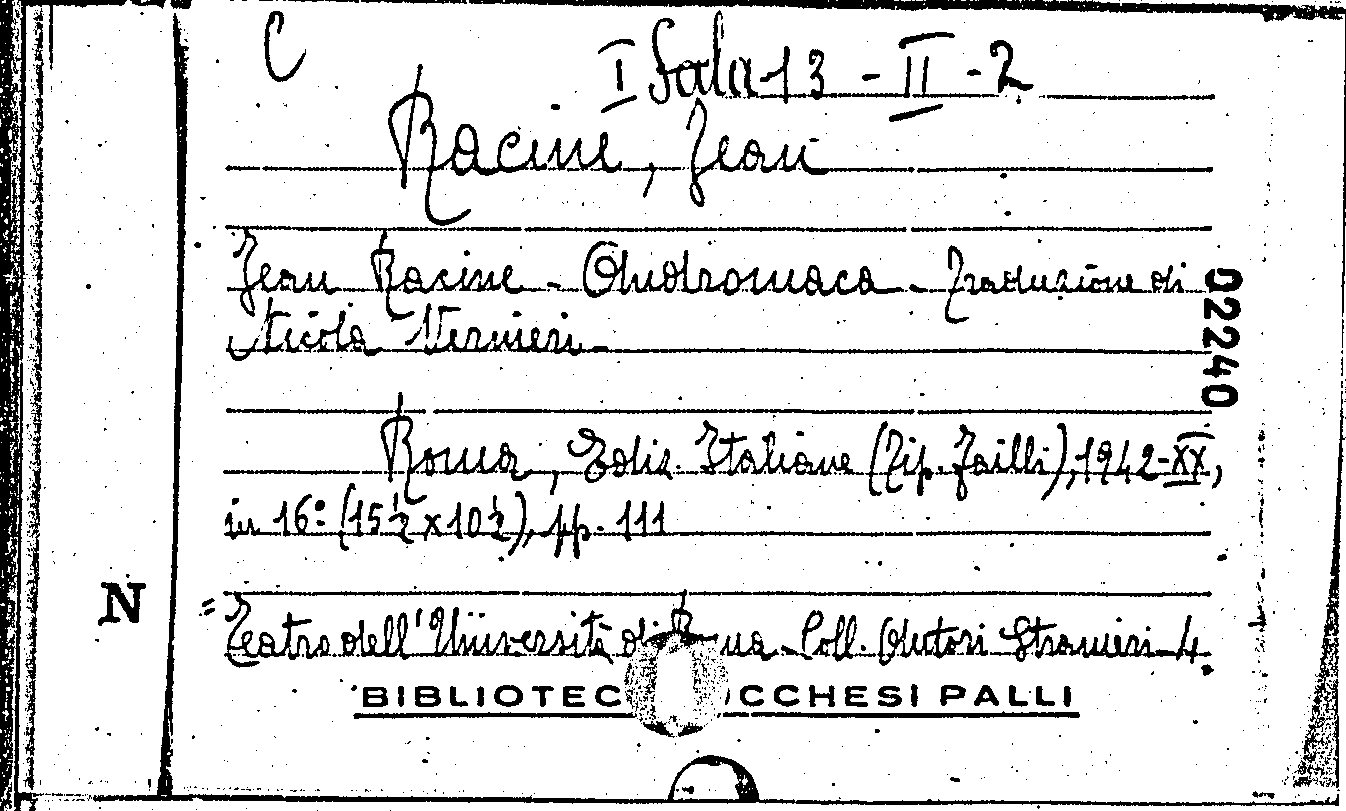 C
I Sala 13 - II - 2
Racine, Jean
Jean Racine - Andromaca - Traduzione di
Nicola Vernieri -
Roma, Ediz. Italiane (Tip. Failli), 1942-XX,
in 16º (15½ x 10½), pp. 111
= Teatro dell'Università di Roma - Coll. Autori Stranieri - 4.
BIBLIOTEC UCCHESI PALLI
N
02240